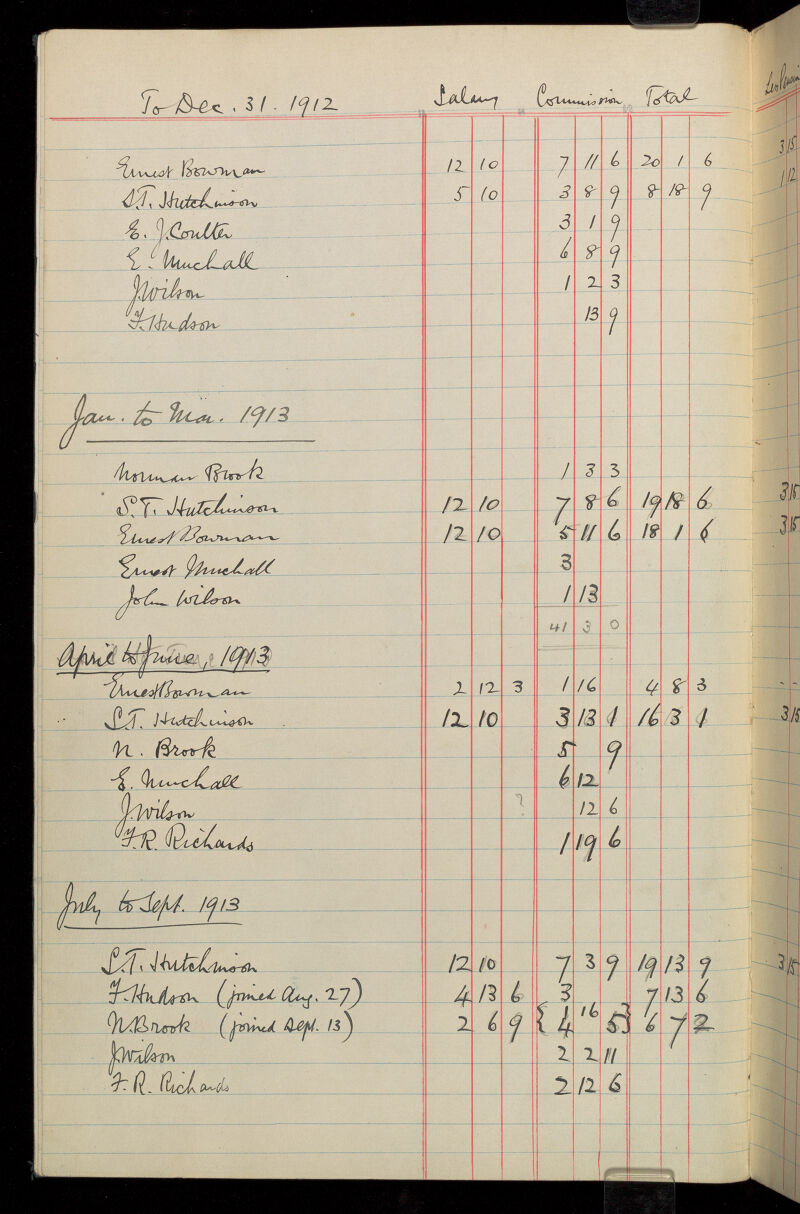 To Dec. 31. 1912 Salary Commission Total
Ernest Bowman 12 10 7 11 6 20 1 6
S.T. Hutchinson 5 10 3 8 9 8 18 9
E. J. Coulter 3 1 9
E. Murchall 6 8 9
J. Wilson 1 2 3
F. Hudson 13 9
Jan. to Mar. 1913
Norman Brook 1 3 3
S.T. Hutchinson 12 10 7 8 6 19 18 6
Ernest Bowman 12 10 5 11 6 18 1 6
Ernest Murchall 3
John Wilson 1 13
41 3 0
April to June, 1913
Ernest Bowman 2 12 3 1 16 4 8 3
S.T. Hutchinson 12 10 3 13 1 16 3 1
N. Brook 5 9
E. Murchall 6 12
J. Wilson ? 12 6
F.R. Richards 1 19 6
July to Sept. 1913
S.T. Hutchinson 12 10 7 3 9 19 13 9
F. Hudson (joined Aug. 27) 4 13 6 3 7 13 6
N. Brook (joined Sept. 13) 2 6 9 { 1 16 4 5 } 6 7 2
J. Wilson 2 2 11
F. R. Richards 2 12 6
3 15
1 12
3 15
3 15
- -
3 15
3 15